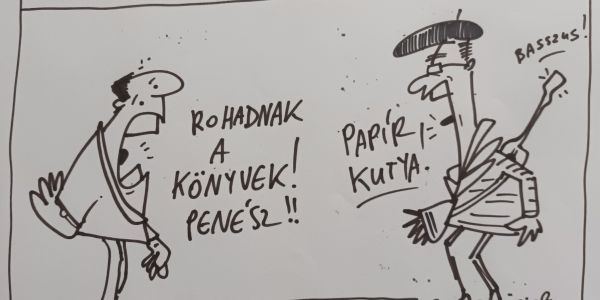 ROHADNAK
A
KÖNYVEK!
PENÉSZ!!
PAPÍR
KUTYA.
BASSZUS!